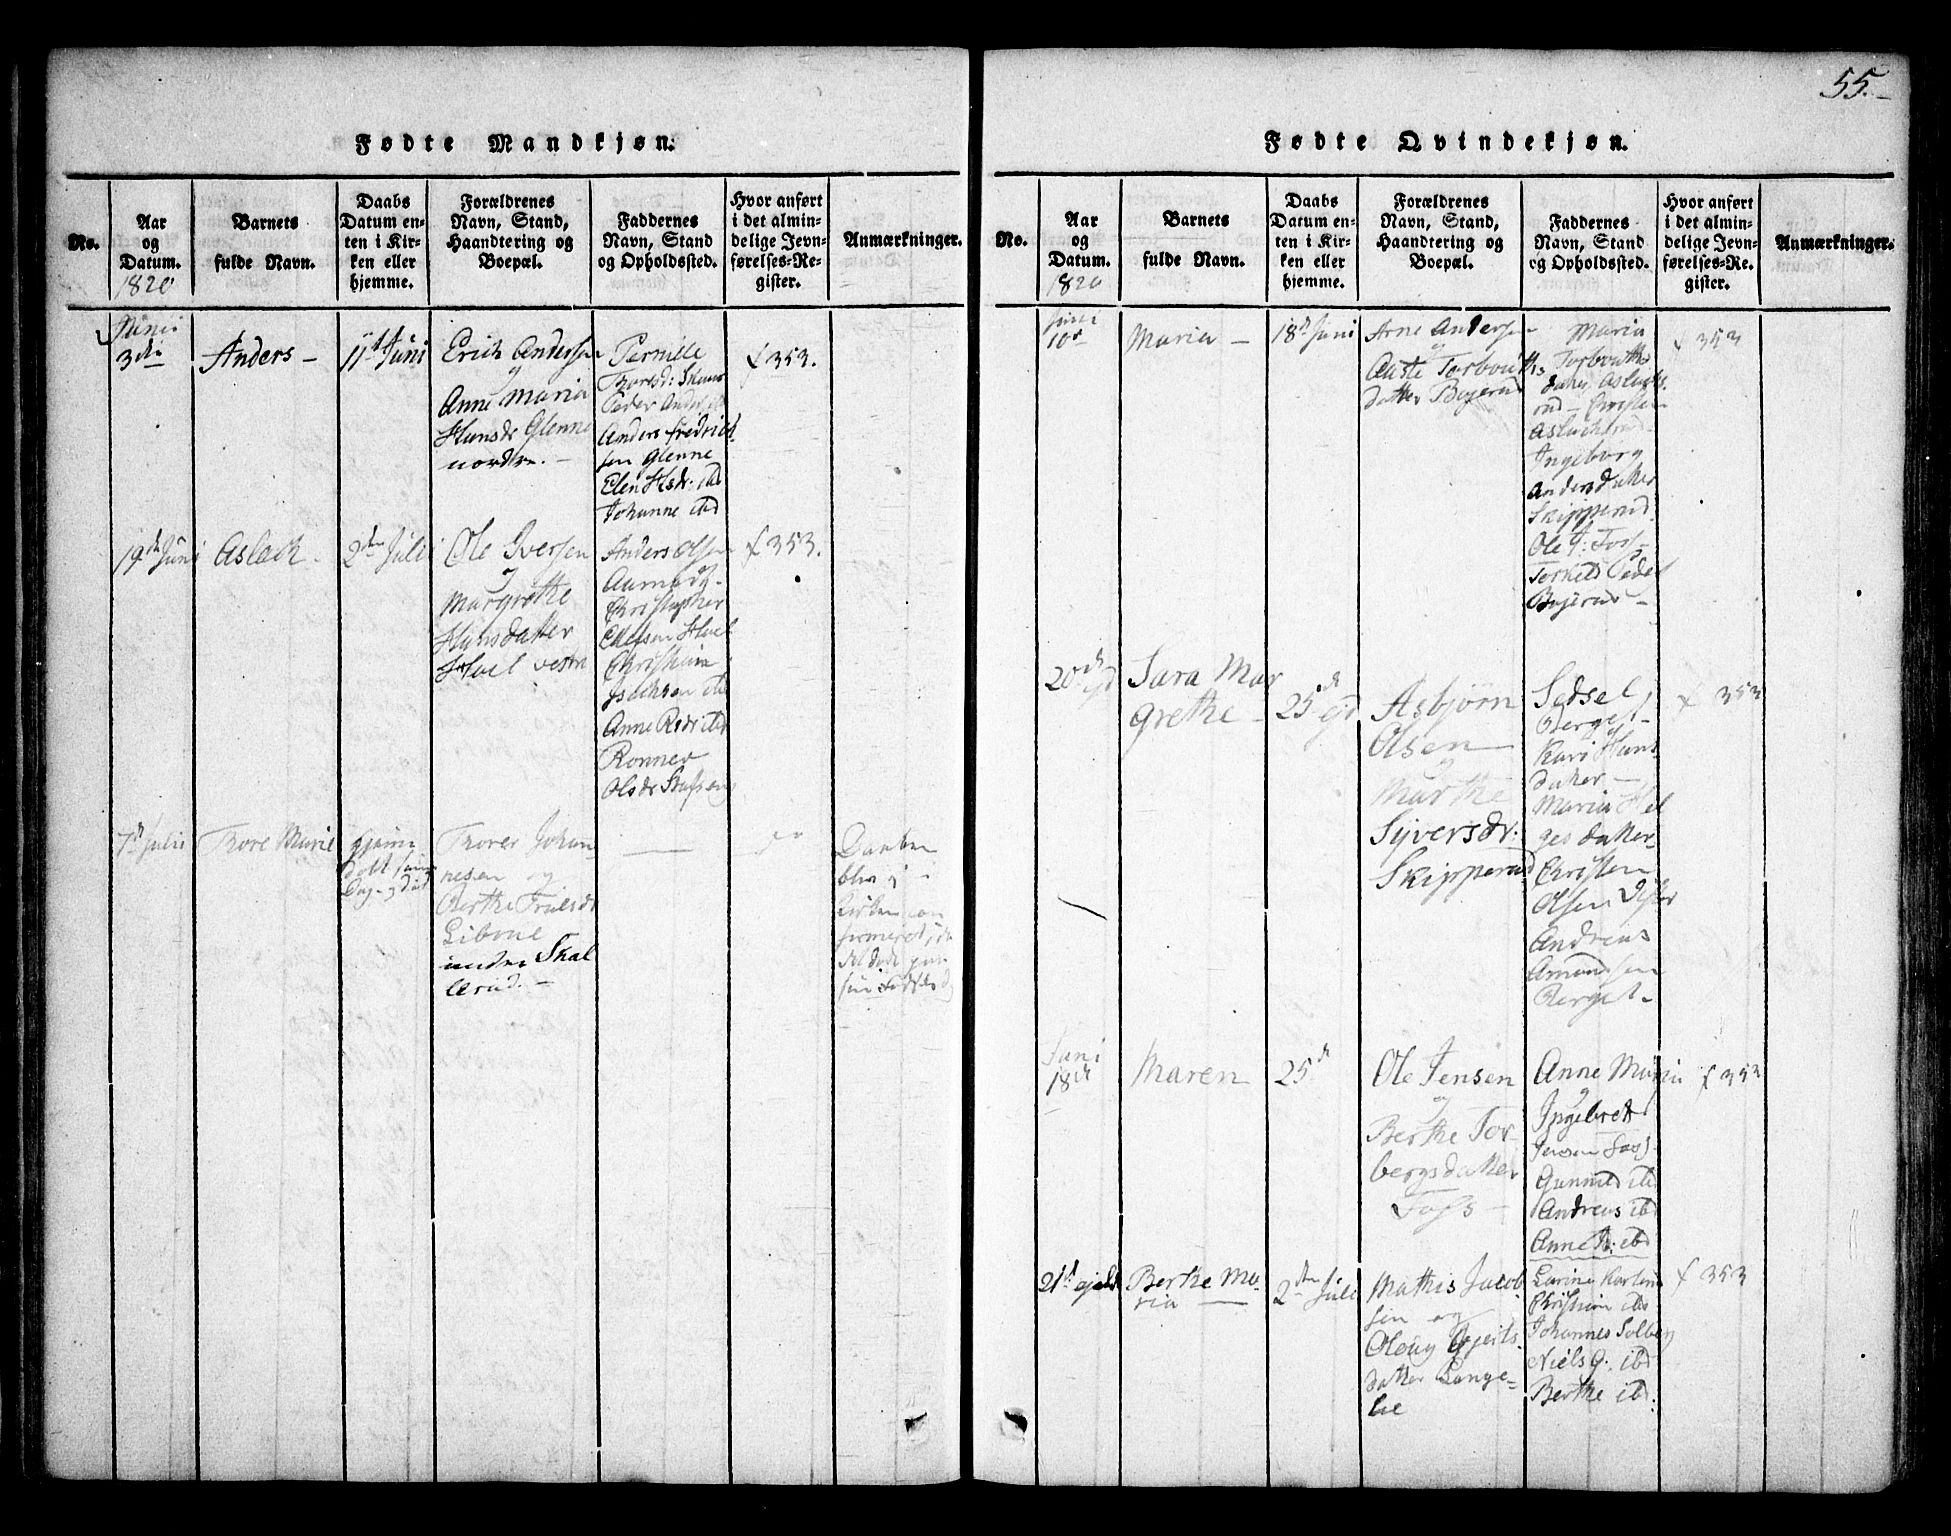 55.
Fødte Mandkjøn.
No.
Aar
og
Datum.
1820
Barnets
fulde Navn.
Daabs
Datum en-
ten i Kir-
ken eller
hjemme.
Forældrenes
Navn, Stand,
Haandtering og
Boepæl.
Faddernes
Navn, Stand
og Opholdssted.
Hvor anført
i det almin-
delige Jevn-
førelses-Re-
gister.
Anmærkninger.
Junii
3die
Anders –
11te Juni
Erich Andersen
og
Anne Maria
Hansdr Glenne
nordre. –
Pernille
Thoresd:
Peder
Anders Fredrich
sen Glenne
Elen Hsdr: ibd
Johanne ibd
f 353.
19de Juni
Aslach –
2den Juli
Ole Iversen
og
Margrethe
Hansdatter
Hvel vestre
Anders Olsen
Christopher
Christian
Isachsen ibd
Anne Rsdr: ibd
Ronner
Olsdr
f 353.
7de Julii
Thore Marie
Thorer Johan-
nesen og
Berthe Truelsdr
under Skal
lerud. –
Daaben
blev ei
Kirken con
firmeret, da
det døde
Fødte Qvindekjøn.
No.
Aar
og
Datum.
1820
Barnets
fulde Navn.
Daabs
Datum en-
ten i Kir-
ken eller
hjemme.
Forældrenes
Navn, Stand,
Haandtering og
Boepæl.
Faddernes
Navn, Stand
og Opholdssted.
Hvor anført
i det almin-
delige Jevn-
førelses-Re-
gister.
Anmærkninger.
Junii
10d
Maria –
18de Juni
Arne Andersen
og
Aaste Torbouths
datter Bøjerud
Maria
Torbouths
datter Aslachs
rud – Christen
Aslachsrud
Ingeborg
Andersdatter
Skipperud
Ole J: Foss –
Torkild Peders
Bøjerud –
f 353
20de ejd
Sara Mar
grethe –
25de ejd
Asbjørn
Olsen
og
Marthe
Syversdr:
Skipperud
Sedsel
Berget –
Kari Hans
datter –
Maria Hel
gesdatter –
Christen
Olsen
Andreas
Amundsen
Berget –
f 353
Juni
18de
Maren
25de
Ole Jensen
og
Berthe Tor
bergsdatter
Foss –
Anne Maria
og
Ingebret
Jensen Foss
Gunnild ibd
Andreas ibd
Anne A: ibd
f 353
21de ejusd
Berthe Ma
ria –
2den Juli
Mathis Jacob
sen og
datter Lange-
Larine Karline
Christian ibd
Johannes Solberg
Niels G. ibd
Berthe ibd:
f 353